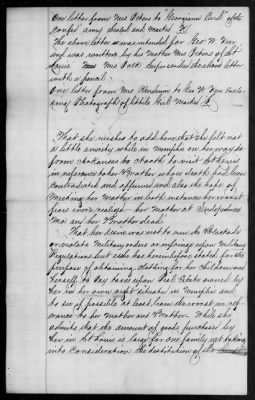 One letter from Mrs Peters to "Georgiana Carroll" of the
Confed army sealed and marked
The above letter was intended for Geo W. Dyer
and was written by his Mother Mrs Peters of St
Louis Mrs Polk superscribed the above letter
with a pencil.
One letter from Mrs to Geo W. Dyer enclo-
sing Photograph of little Will Marked
That she wishes to add here that she felt not
a little anxiety while in Memphis on her way to &
from Arkansas to South to visit St Louis
in reference to her Brother whose death had been
contradicted and affirmed and also the hope of
Meeting her Mother in both instances her worst
fears were realized her Mother at Independence
Mo and her Brother dead
That her desire was not to run the Blockade
or violate Military orders or infringe upon Military
Regulations but as she has heretofore stated for the
purpose of obtaining Clothing for her children and
herself to pay taxes upon Real Estate owned by
her in her own right situated in Memphis and
to see if possible at least learn the worst in ref-
erence to her Mother and Brother. While she
admits that the amount of goods purchased by
her in St Louis is large for one family yet taking
into Consideration the destitution of